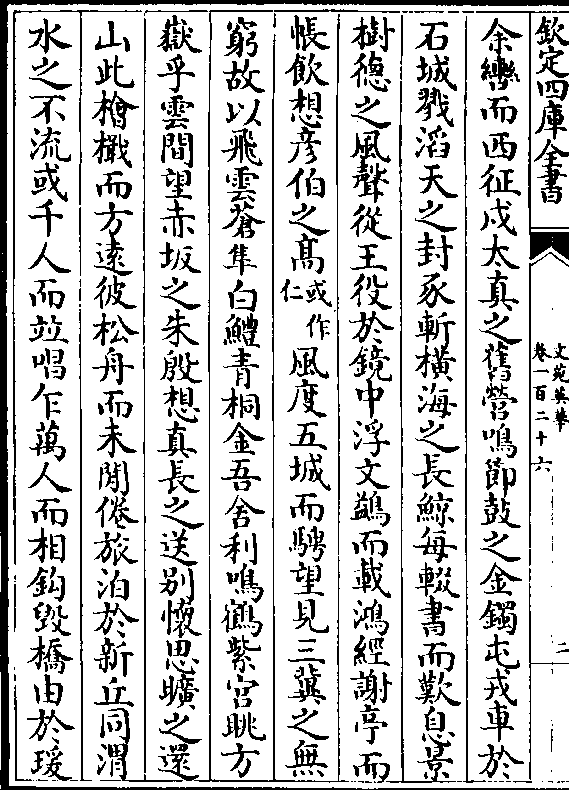 欽定四庫全書
文苑英華
卷一百二十六
二
余轡而西征戍太真之舊營鳴節鼓之金鐲屯戎車於
石城戮滔天之封豕斬橫海之長鯨每輟書而歎息景
樹德之風聲從王役於鏡中浮文鷁而載鴻經謝亭而
悵飲想彦伯之髙或作仁風度五城而騁望見三冀之無
窮故以飛雲蒼隼白鱧青桐金吾舍利鳴鶴紫宫眺方
嶽乎雲間望赤坂之朱殷想真長之送别懷思曠之還
山此檜檝而方逺彼松舟而未閒倦旅泊於新丘同渭
水之不流或千人而竝唱乍萬人而相鈎毀橋由於瑗